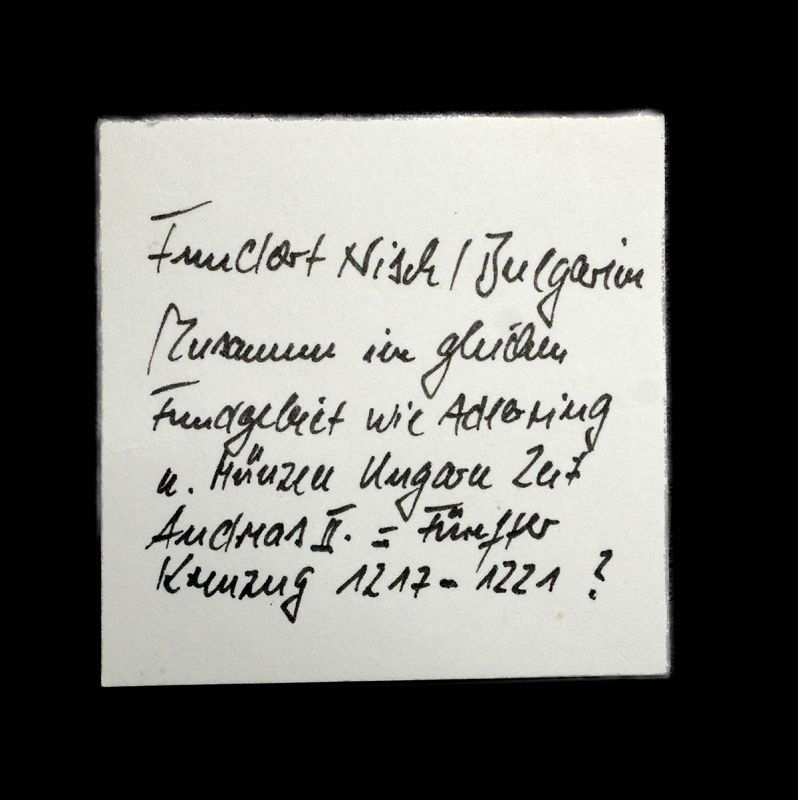 Fundort Nisch / Bulgarien
Zusammen im gleichen
Fundgebiet wie Adlerring
u. Münzen Ungarn Zeit
Andreas II. = Fünfter
Kreuzzug 1217 - 1221 ?